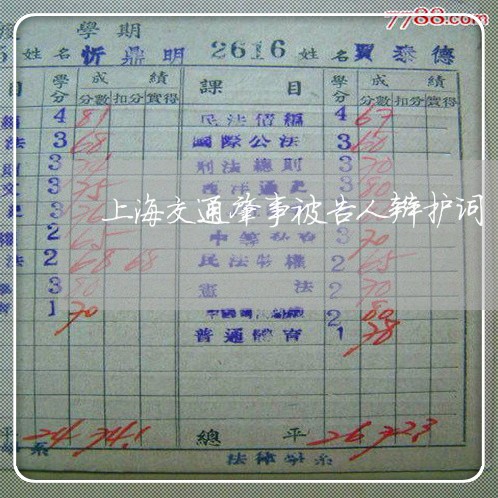 7788.com
學期
姓名 忻鼎明 2616 姓名 賈泰德
目 學分 成績 課目 學分 成績
分數 扣分 實得 分數 扣分 實得
4 81 民法債編 4 67
法 3 68 國際公法 3 60
3 刑法總則 3 70
3 75 3 80
上海交通肇事被告人辩护词
2 65 3 70
法 2 68 68 民法物權 2 65
3 80 憲法 2 70
1 70 2 80
普通體育 1 78
平 24 74.1 總平 26 72.3
系 法律學系